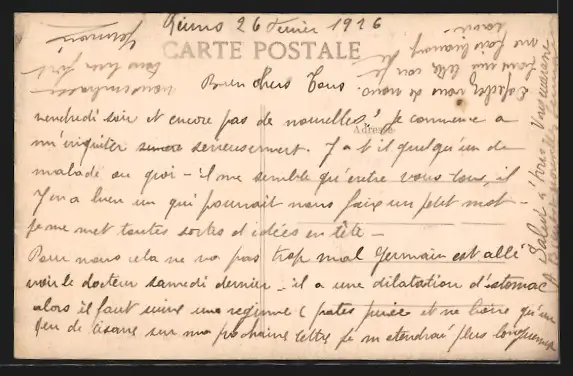 Reims 26 Fevrier 1926
CARTE POSTALE
Adresse
Bien chers Tous
vendredi soir et encore pas de nouvelles, je commence a
m'inquiter serieusement. Y a t il quelqu'un de
malade ou quoi - il me semble qu'entre vous tous, il
y en a bien un qui pourrait nous faire un petit mot -
je me met toutes sortes d'idées en tête -
Pour nous cela ne va pas trop mal Germain est allé
voir le docteur samedi dernier - il a une dilatation d'estomac
alors il faut suivre une regime ( pates puree et ne boire qu'un
peu de tisane sur ma prochaine lettre je m'etendrai plus longuement
nous embrasse
tous bien fort
Germaine